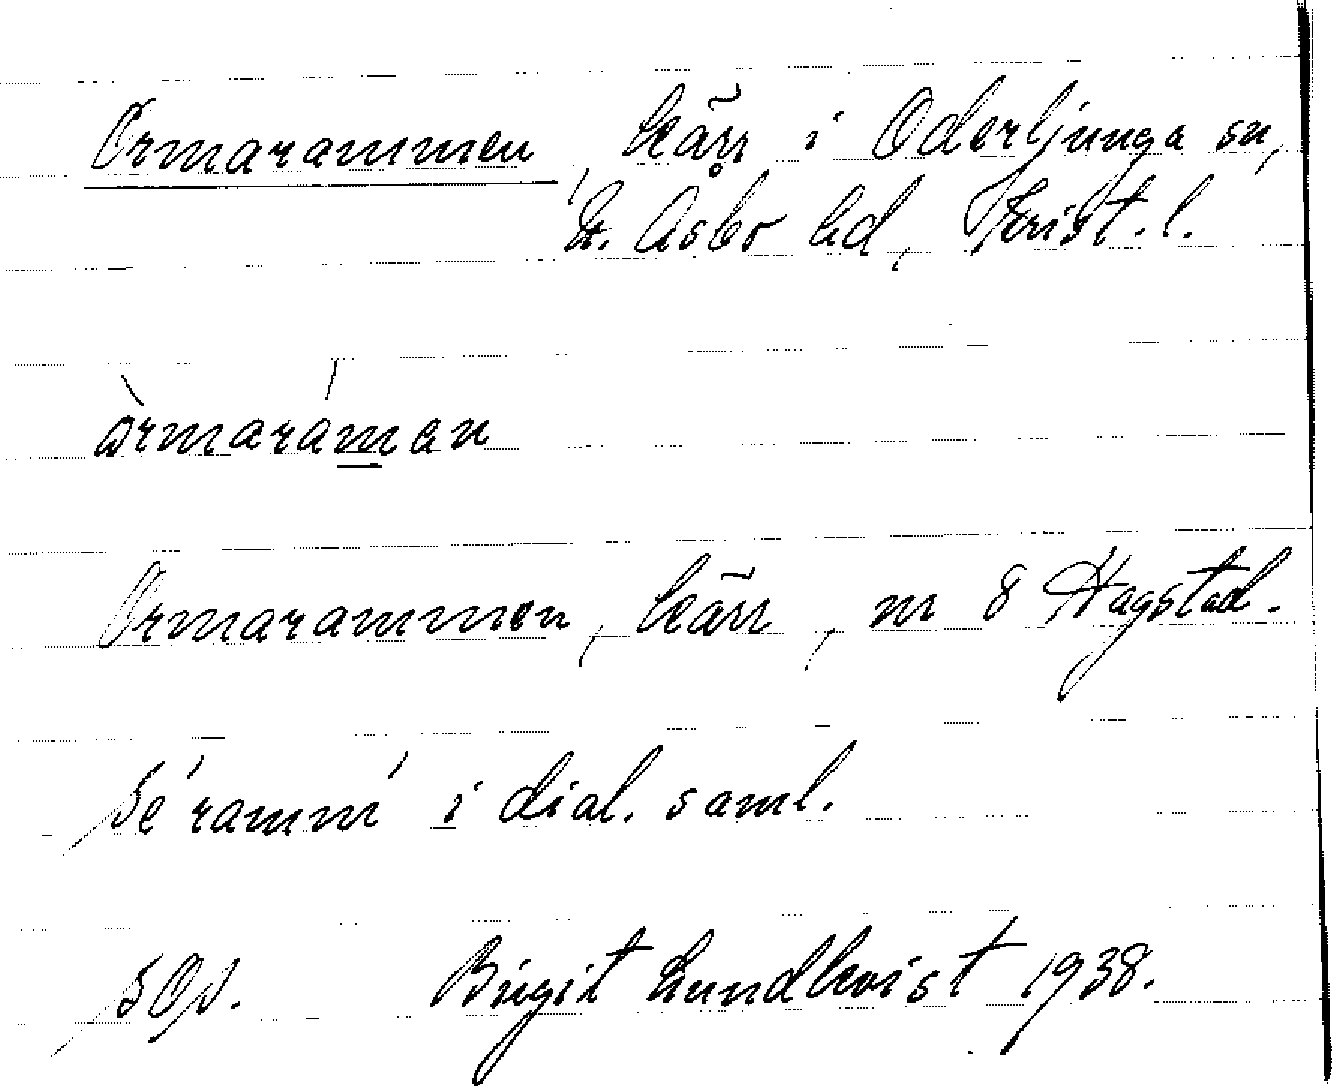 Ormarammen, kärr i Oderljunga sn,
N. Åsbo hd, Krist. l.
òrmaráman
Ormarammen, kärr, nr 8 Hagstad.
Se 'ramm' i dial. saml.
SOP. Birgit Lundkvist 1938.